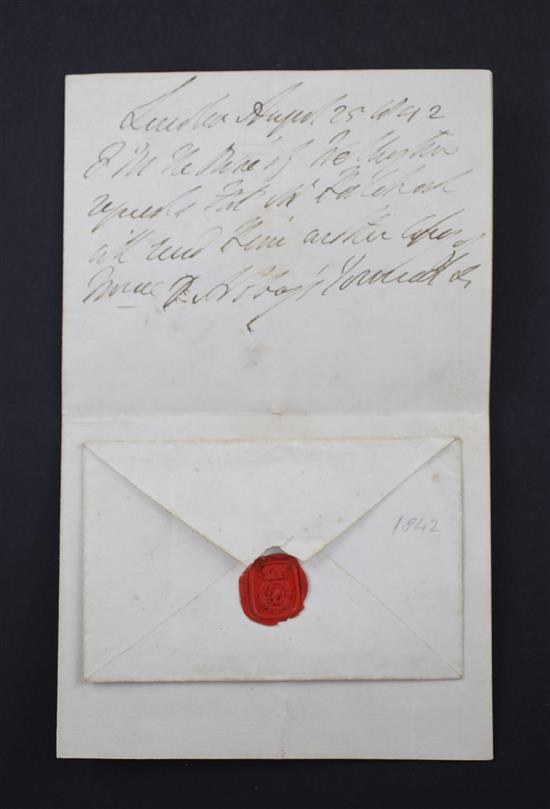 London August 25 1842
F M The Duke of Wellington
requests that Mr
will send Him another Copy of
Journal &c
1842